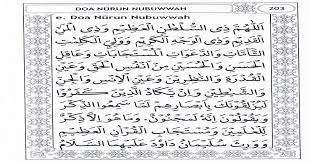 DOA NURUN NUBUWWAH 203
e. Doa Nūrun Nubuwwah
اَللّٰهُمَّ ذِى السُّلْطٰنِ الْعَظِيْمِ وَذِى الْمَنِّ
الْقَدِيْمِ وَذِى الْوَجْهِ الْكَرِيْمِ وَوَلِيِّ الْكَلِمٰتِ
التَّآمَّاتِ وَالدَّعَوَاتِ الْمُسْتَجَابَاتِ عَاقِلِ
الْحَسَنِ وَالْحُسَيْنِ مِنْ اَنْفُسِ الْحَقِّ عَيْنِ
الْقُدْرَةِ وَالنَّاظِرِيْنَ وَعَيْنِ الْاِنْسِ وَالْجِنِّ
وَالشَّيٰطِيْنِ وَاِنْ يَّكَادُ الَّذِيْنَ كَفَرُوْا
لَيُزْلِقُوْنَكَ بِاَبْصَارِهِمْ لَمَّا سَمِعُوا الذِّكْرَ
وَيَقُوْلُوْنَ اِنَّهُ لَمَجْنُوْنٌ وَمَا هُوَ اِلَّا ذِكْرٌ
لِلْعٰلَمِيْنَ وَمُسْتَجَابِ الْقُرْاٰنِ الْعَظِيْمِ
وَوَرِثَ سُلَيْمَانُ دَاوٗدَ عَلَيْهِمَا السَّلَامُ